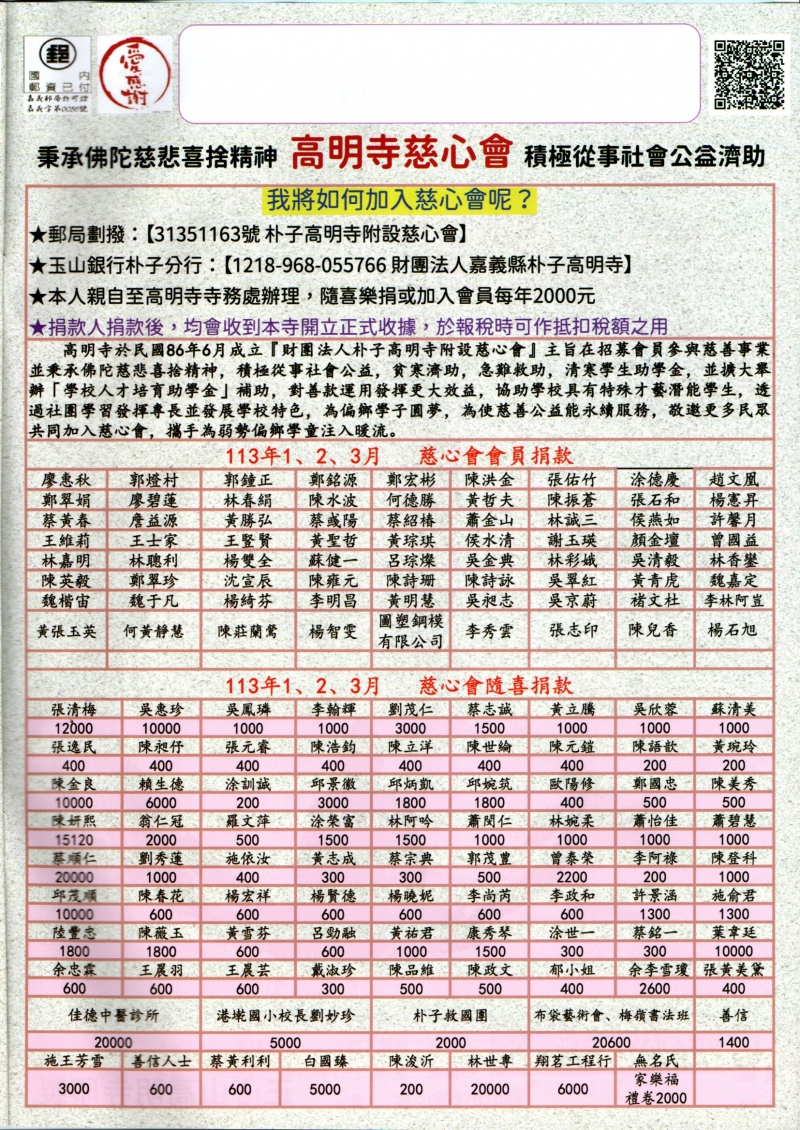 郵
國 內
郵資已付
嘉義郵局許可證
嘉義字第0056號
愛感謝
秉承佛陀慈悲喜捨精神 高明寺慈心會 積極從事社會公益濟助
我將如何加入慈心會呢？
★郵局劃撥：【31351163號 朴子高明寺附設慈心會】
★玉山銀行朴子分行：【1218-968-055766 財團法人嘉義縣朴子高明寺】
★本人親自至高明寺寺務處辦理，隨喜樂捐或加入會員每年2000元
★捐款人捐款後，均會收到本寺開立正式收據，於報稅時可作抵扣稅額之用
高明寺於民國86年6月成立『財團法人朴子高明寺附設慈心會』主旨在招募會員參與慈善事業
並秉承佛陀慈悲喜捨精神，積極從事社會公益，貧寒濟助，急難救助，清寒學生助學金，並擴大舉
辦「學校人才培育助學金」補助，對善款運用發揮更大效益，協助學校具有特殊才藝潛能學生，透
過社團學習發揮專長並發展學校特色，為偏鄉學子圓夢，為使慈善公益能永續服務，敬邀更多民眾
共同加入慈心會，攜手為弱勢偏鄉學童注入暖流。
113年1、2、3月 慈心會會員捐款
廖惠秋 郭燈村 郭鐘正 鄭銘源 鄭宏彬 陳洪金 張佑竹 涂德慶 趙文凰
鄭翠娟 廖碧蓮 林春絹 陳水波 何德勝 黃哲夫 陳振蒼 張石和 楊憲昇
蔡黃春 詹益源 黃勝弘 蔡彧陽 蔡紹椿 蕭金山 林誠三 侯燕如 許馨月
王維莉 王士家 王豎賢 黃聖哲 黃琮琪 侯水清 謝玉瑛 顏金壇 曾國益
林嘉明 林聰利 楊雙全 蘇健一 呂琮燦 吳金典 林彩娥 吳清毅 林香鑾
陳英毅 鄭翠珍 沈宣辰 陳雍元 陳詩珊 陳詩詠 吳翠紅 黃青虎 魏嘉定
魏楷宙 魏于凡 楊綺芬 李明昌 黃明慧 吳昶志 吳京蔚 褚文社 李林阿豈
黃張玉英 何黃靜慧 陳莊蘭鶯 楊智雯 圃塑鋼模有限公司 李秀雲 張志印 陳兒香 楊石旭
113年1、2、3月 慈心會隨喜捐款
張清梅 吳惠珍 吳鳳璘 李翰輝 劉茂仁 蔡志誠 黃立騰 吳欣蓉 蘇清美
12000 10000 1000 1000 3000 1500 1000 1000 1000
張逸民 陳昶伃 張元睿 陳浩鈞 陳立洋 陳世綸 陳元鎧 陳語歆 黃琬玲
400 400 400 400 400 400 400 200 200
陳金良 賴生德 涂訓誠 邱景徽 邱炳凱 邱婉筑 歐陽修 鄭國忠 陳美秀
10000 6000 200 3000 1800 1800 400 500 500
陳妍熙 翁仁冠 羅文萍 涂榮富 林阿吟 蕭閔仁 林婉柔 蕭怡佳 蕭碧慧
15120 2000 500 1500 1500 1000 1000 1000 1000
蔡順仁 劉秀蓮 施依汝 黃志成 蔡宗典 郭茂豊 曾泰榮 李阿祿 陳登科
20000 1000 400 300 300 500 2200 200 1000
邱茂順 陳春花 楊宏祥 楊賢德 楊曉妮 李尚芮 李政和 許景涵 施俞君
10000 600 600 600 600 600 600 1300 1300
陸豐忠 陳薇玉 黃雪芬 呂勁融 黃祐君 康秀琴 涂世一 蔡銘一 葉韋廷
1800 1800 600 600 1000 1500 300 300 10000
余忠霖 王晨羽 王晨芸 戴淑珍 陳品維 陳政文 郁小姐 余李雪瓊 張黃美黛
600 600 600 300 500 500 400 2600 400
佳德中醫診所 港墘國小校長劉妙珍 朴子救國團 布袋藝術會、梅嶺書法班 善信
20000 5000 2000 20600 1400
施王芳雪 善信人士 蔡黃利利 白國臻 陳浚沂 林世專 翔茗工程行 無名氏
3000 600 600 5000 200 20000 6000 家樂福禮卷2000